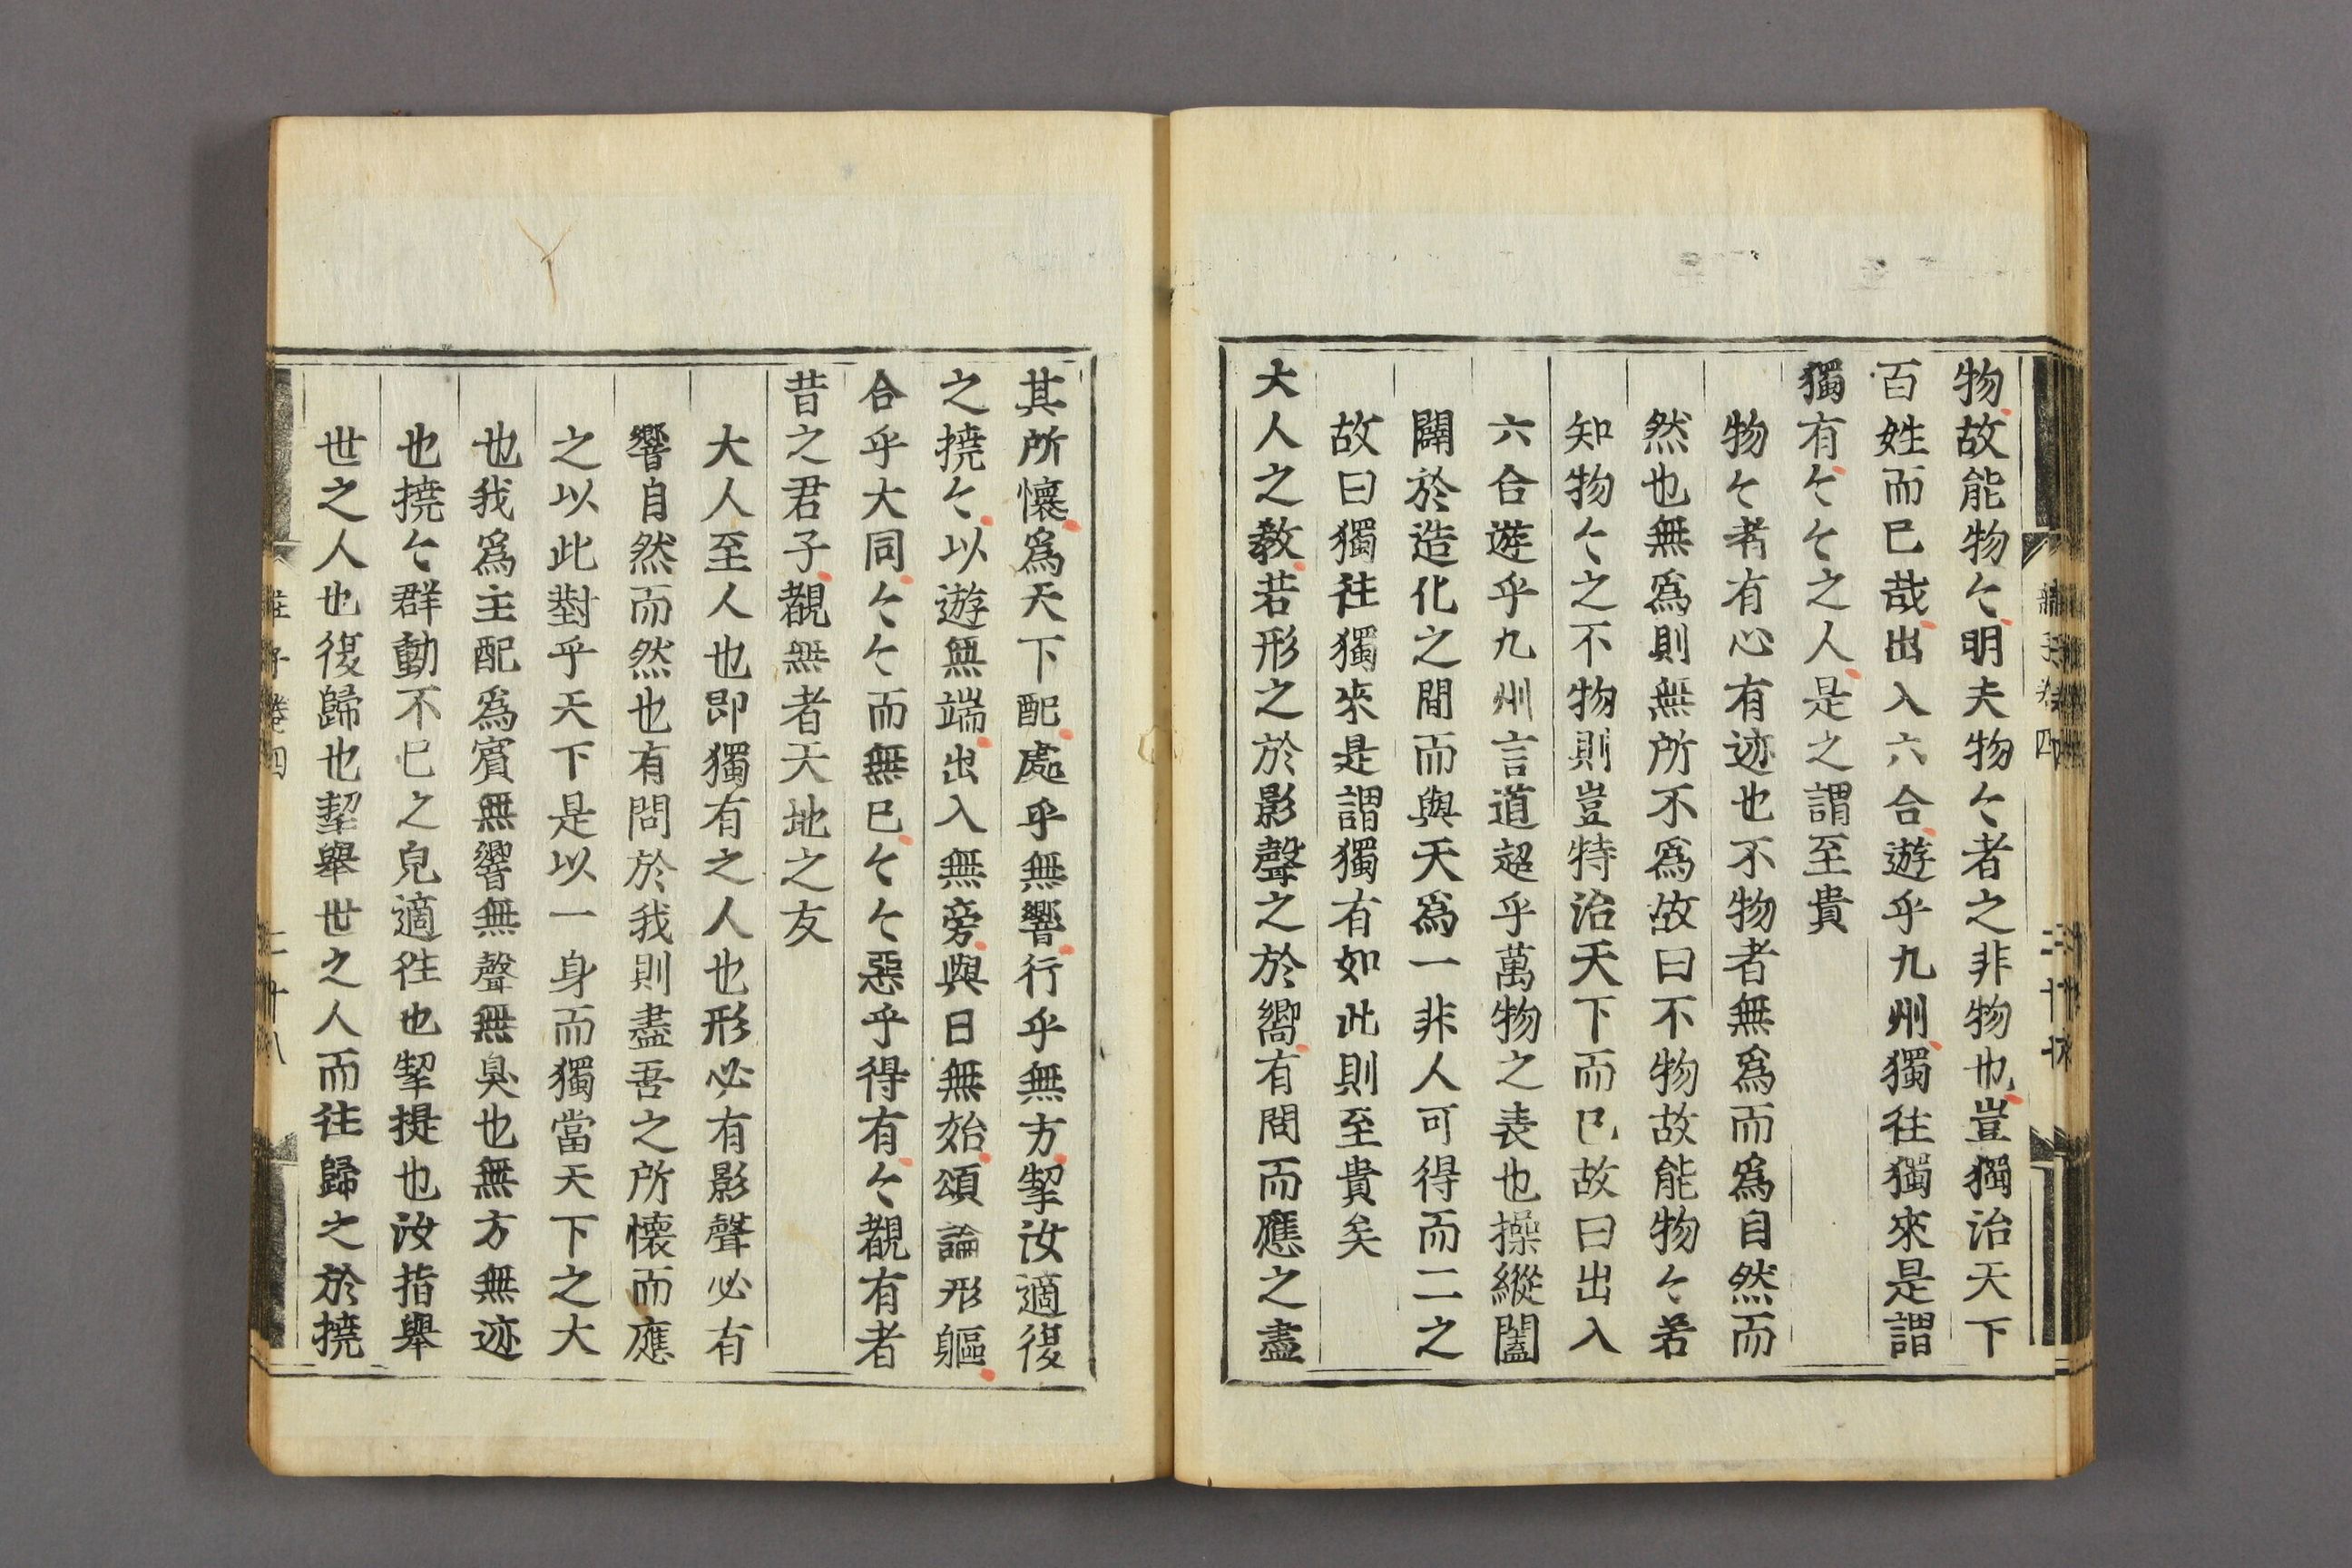 物故能物々明夫物々者之非物也豈獨治天下
百姓而已哉出入六合遊乎九州獨徃獨來是謂
獨有々々之人是之謂至貴
物々者有心有迹也不物者無爲而爲自然而
然也無爲則無所不爲故曰不物故能物々若
知物々之不物則豈特治天下而已故曰出入
六合遊乎九州言道超乎萬物之表也操縱闔
闢於造化之間而與天爲一非人可得而二之
故曰獨徃獨來是謂獨有如此則至貴矣
大人之教若形之於影聲之於嚮有問而應之盡
其所懷爲天下配處乎無響行乎無方挈汝適復
之撓々以遊無端出入無旁與日無始頌論形軀
合乎大同々々而無已々々惡乎得有々覩有者
昔之君子覩無者天地之友
大人至人也即獨有之人也形必有影聲必有
響自然而然也有問於我則盡吾之所懷而應
之以此對乎天下是以一身而獨當天下之大
也我爲主配爲賓無響無聲無臭也無方無迹
也撓々群動不已之皃適徃也挈提也汝指舉
世之人也復歸也挈舉世之人而徃歸之於撓
莊子卷四
二十八